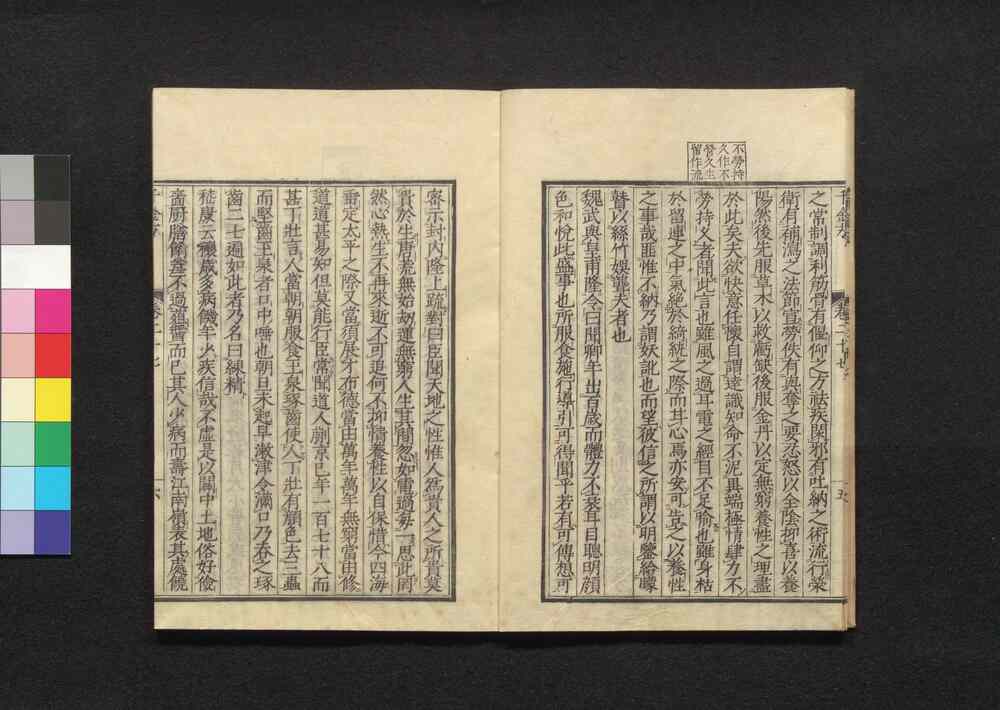 不勞持
久作不
營久生
留作流
之常制調利筋骨有偃仰之方祛疾閑邪有吐納之術流行榮
衛有補瀉之法節宣勞佚有與奪之要忍怒以全陰抑喜以養
陽然後先服草木以救虧缺後服金丹以定無窮養性之理盡
於此矣夫欲快意任懷自謂達識知命不泥異端極情肆力不
勞持久者聞此言也雖風之過耳電之經目不足喻也雖身枯
於留連之中氣絕於綺紈之際而甘心焉亦安可告之以養性
之事哉匪惟不納乃謂妖訛也而望彼信之所謂以明鑒給矇
瞽以絲竹娛聾夫者也
魏武與皇甫隆令曰聞卿年出百歲而體力不衰耳目聰明顏
色和悅此盛事也所服食施行導引可得聞乎若有可傳想可
密示封內隆上疏對曰臣聞天地之性惟人爲貴人之所貴莫
貴於生唐荒無始劫運無窮人生其間忽如電過每一思此罔
然心熱生不再來逝不可追何不抑情養性以自保惜今四海
垂定太平之際又當須展才布德當由萬年萬年無窮當由修
道道甚易知但莫能行臣常聞道人蒯京已年一百七十八而
甚丁壯言人當朝朝服食玉泉琢齒使人丁壯有顏色去三蟲
而堅齒玉泉者口中唾也朝旦未起早漱津令滿口乃吞之琢
齒二七遍如此者乃名曰練精
嵇康云穰歲多病饑年少疾信哉不虛是以關中土地俗好儉
嗇廚膳肴羞不過菹醬而已其人少病而壽江南嶺表其處饒
卷二十七